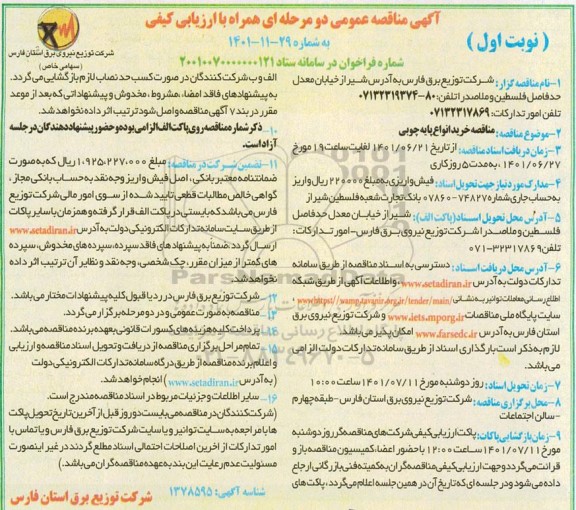 آگهی مناقصه عمومی دو مرحله ای همراه با ارزیابی کیفی
( نوبت اول )
به شماره ۲۹-۱۱-۱۴۰۱
شماره فراخوان در سامانه ستاد ۲۰۰۱۰۰۷۰۰۰۰۰۰۱۲۱
شرکت توزیع نیروی برق استان فارس
(سهامی خاص)
۱-نام مناقصه گزار: شرکت توزیع برق فارس به آدرس شیراز خیابان معدل
حدفاصل فلسطین و ملاصدرا تلفن: ۸۰-۰۷۱۳۲۳۱۹۳۷۴
تلفن امور تدارکات: ۰۷۱۳۲۳۱۷۸۶۹
۲-موضوع مناقصه: مناقصه خرید انواع پایه چوبی
۳-زمان دریافت اسناد مناقصه: از تاریخ ۱۴۰۱/۰۶/۲۱ لغایت ساعت ۱۹ مورخ
۱۴۰۱/۰۶/۲۷ ، به مدت ۵ روز کاری
۴-مدارک مورد نیاز جهت تحویل اسناد: فیش واریزی به مبلغ ۲۲۰۰۰۰ ریال واریز
به حساب جاری شماره ۰۷۸۶۰-۷۴۸۲۷ بانک تجارت شعبه فلسطین شیراز
۵-آدرس محل تحویل اسناد (پاکت الف): شیراز خیابان معدل حدفاصل
فلسطین و ملاصدرا شرکت توزیع نیروی برق فارس- امور تدارکات:
تلفن ۳۲۳۱۷۸۶۹-۰۷۱
۶-آدرس محل دریافت اسناد: دسترسی به اسناد مناقصه از طریق سامانه
تدارکات دولت به آدرس www.setadiran.ir، واطلاعات آگهی از طریق شبکه
اطلاع رسانی معاملات توانیر به نشانی /https://wamp.tavanir.org.ir/tender/main
سایت پایگاه ملی مناقصات www.iets.mporg.ir و شرکت توزیع نیروی برق
استان فارس به آدرس www.farsedc.ir امکان پذیر می باشد
لازم به ذکر است بارگذاری اسناد از طریق سامانه تدارکات دولت الزامی
می باشد.
۷-زمان تحویل اسناد: روز دوشنبه مورخ ۱۴۰۱/۰۷/۱۱ ساعت ۱۰:۰۰
۸-محل برگزاری مناقصه: شرکت توزیع نیروی برق استان فارس-طبقه چهارم
-سالن اجتماعات
۹-زمان بازگشایی پاکات: پاکت ارزیابی کیفی شرکت های مناقصه گر روز دوشنبه
مورخ ۱۴۰۱/۰۷/۱۱ ساعت ۱۲:۰۰ با حضور اعضاء کمیسیون مناقصه باز و
قرائت می گردد و جهت ارزیابی کیفی مناقصه گران به کمیته فنی بازرگانی ارجاع
داده می شود و در جلسه ای که تاریخ آن در همین جلسه اعلام می گردد، پاکت های
الف و ب شرکت کنندگان در صورت کسب حد نصاب لازم بازگشایی می گردد.
به پیشنهادهای فاقد امضاء، مشروط، مخدوش و پیشنهاداتی که بعد از موعد
مقرر در بند ۷ آگهی مناقصه واصل شود ترتیب اثر داده نخواهد شد.
۱۰- ذکر شماره مناقصه روی پاکت الف الزامی بوده و حضور پیشنهاد دهندگان در جلسه
آزاد است.
۱۱-تضمین شرکت در مناقصه: مبلغ ۱،۹۲۵،۲۲۷،۰۰۰ ریال که به صورت
ضمانتنامه معتبر بانکی ، اصل فیش واریز وجه نقد به حساب بانکی مجاز،
گواهی خالص مطالبات قطعی تایید شده از سوی امور مالی شرکت توزیع
فارس می باشد که بایستی در پاکت الف قرار گرفته و همزمان با سایر پاکات
از طریق سایت سامانه تدارکات الکترونیکی دولت به آدرس www.setadiran.ir
ارسال گردد. ضمناً به پیشنهادهای فاقد سپرده، سپرده های مخدوش، سپرده
های کمتر از میزان مقرر، چک شخصی، وجه نقد و نظایر آن ترتیب اثر داده
نخواهد شد.
۱۲- شرکت توزیع برق فارس در رد یا قبول کلیه پیشنهادات مختار می باشد.
۱۳- مناقصه به صورت عمومی و در دو مرحله برگزار می گردد.
۱۴- پرداخت کلیه هزینه های کسورات قانونی بعهده برنده مناقصه می باشد.
۱۵- تمام مراحل برگزاری مناقصه از دریافت و تحویل اسناد مناقصه و ارزیابی
و اعلام برنده مناقصه از طریق درگاه سامانه تدارکات الکترونیکی دولت
(به آدرس www.setadiran.ir) انجام خواهد شد.
۱۶- سایر اطلاعات و جزئیات مربوط در اسناد مناقصه مندرج است.
(شرکت کنندگان در مناقصه می بایست دو روز قبل از آخرین تاریخ تحویل پاکت
ها با مراجعه به سایت توانیر و یا سایت شرکت توزیع برق فارس و یا تماس با
امور تدارکات از آخرین اصلاحات احتمالی اسناد مطلع گردند در غیر اینصورت
مسئولیت عدم رعایت این بند به عهده مناقصه گران می باشد.)
شناسه آگهی: ۱۳۷۸۵۹۵
شرکت توزیع برق استان فارس